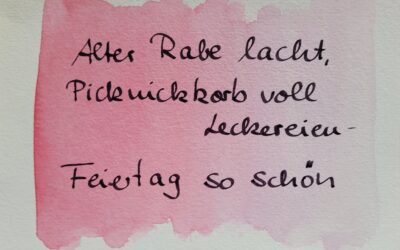 Alter Rabe lacht,
Picknickkorb voll
Leckereien-
Feiertag so schön